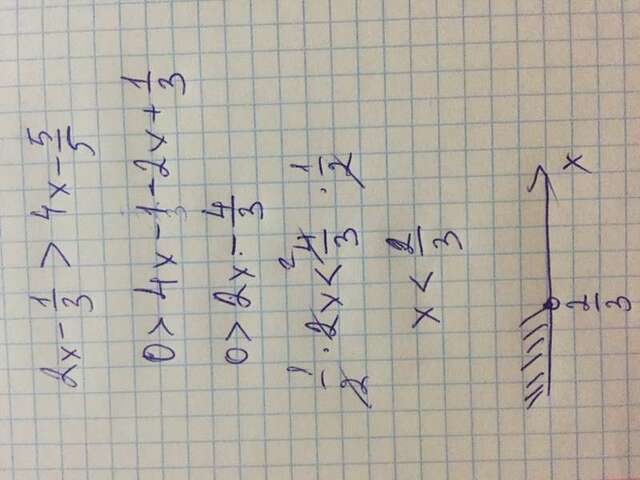 2x - 1/3 > 4x - 5/5
0 > 4x - 1 - 2x + 1/3
0 > 2x - 4/3
1/2 · 2x < 4/3 · 1/2
x < 2/3
x
2/3